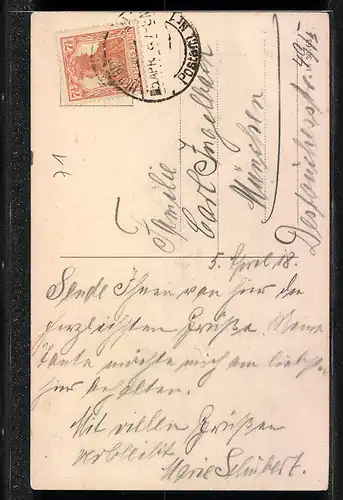 7½ 7½
APR. 18
71
Familie
Carl Ingelhein
München
Dachauerstr. 49
5. April 18.
Sende Ihnen von hier die
herzlichsten Grüße. Meine
Tante möchte mich am liebsten
hier behalten.
Mit villen Grüßen
verbleibt
Marie Schubert.